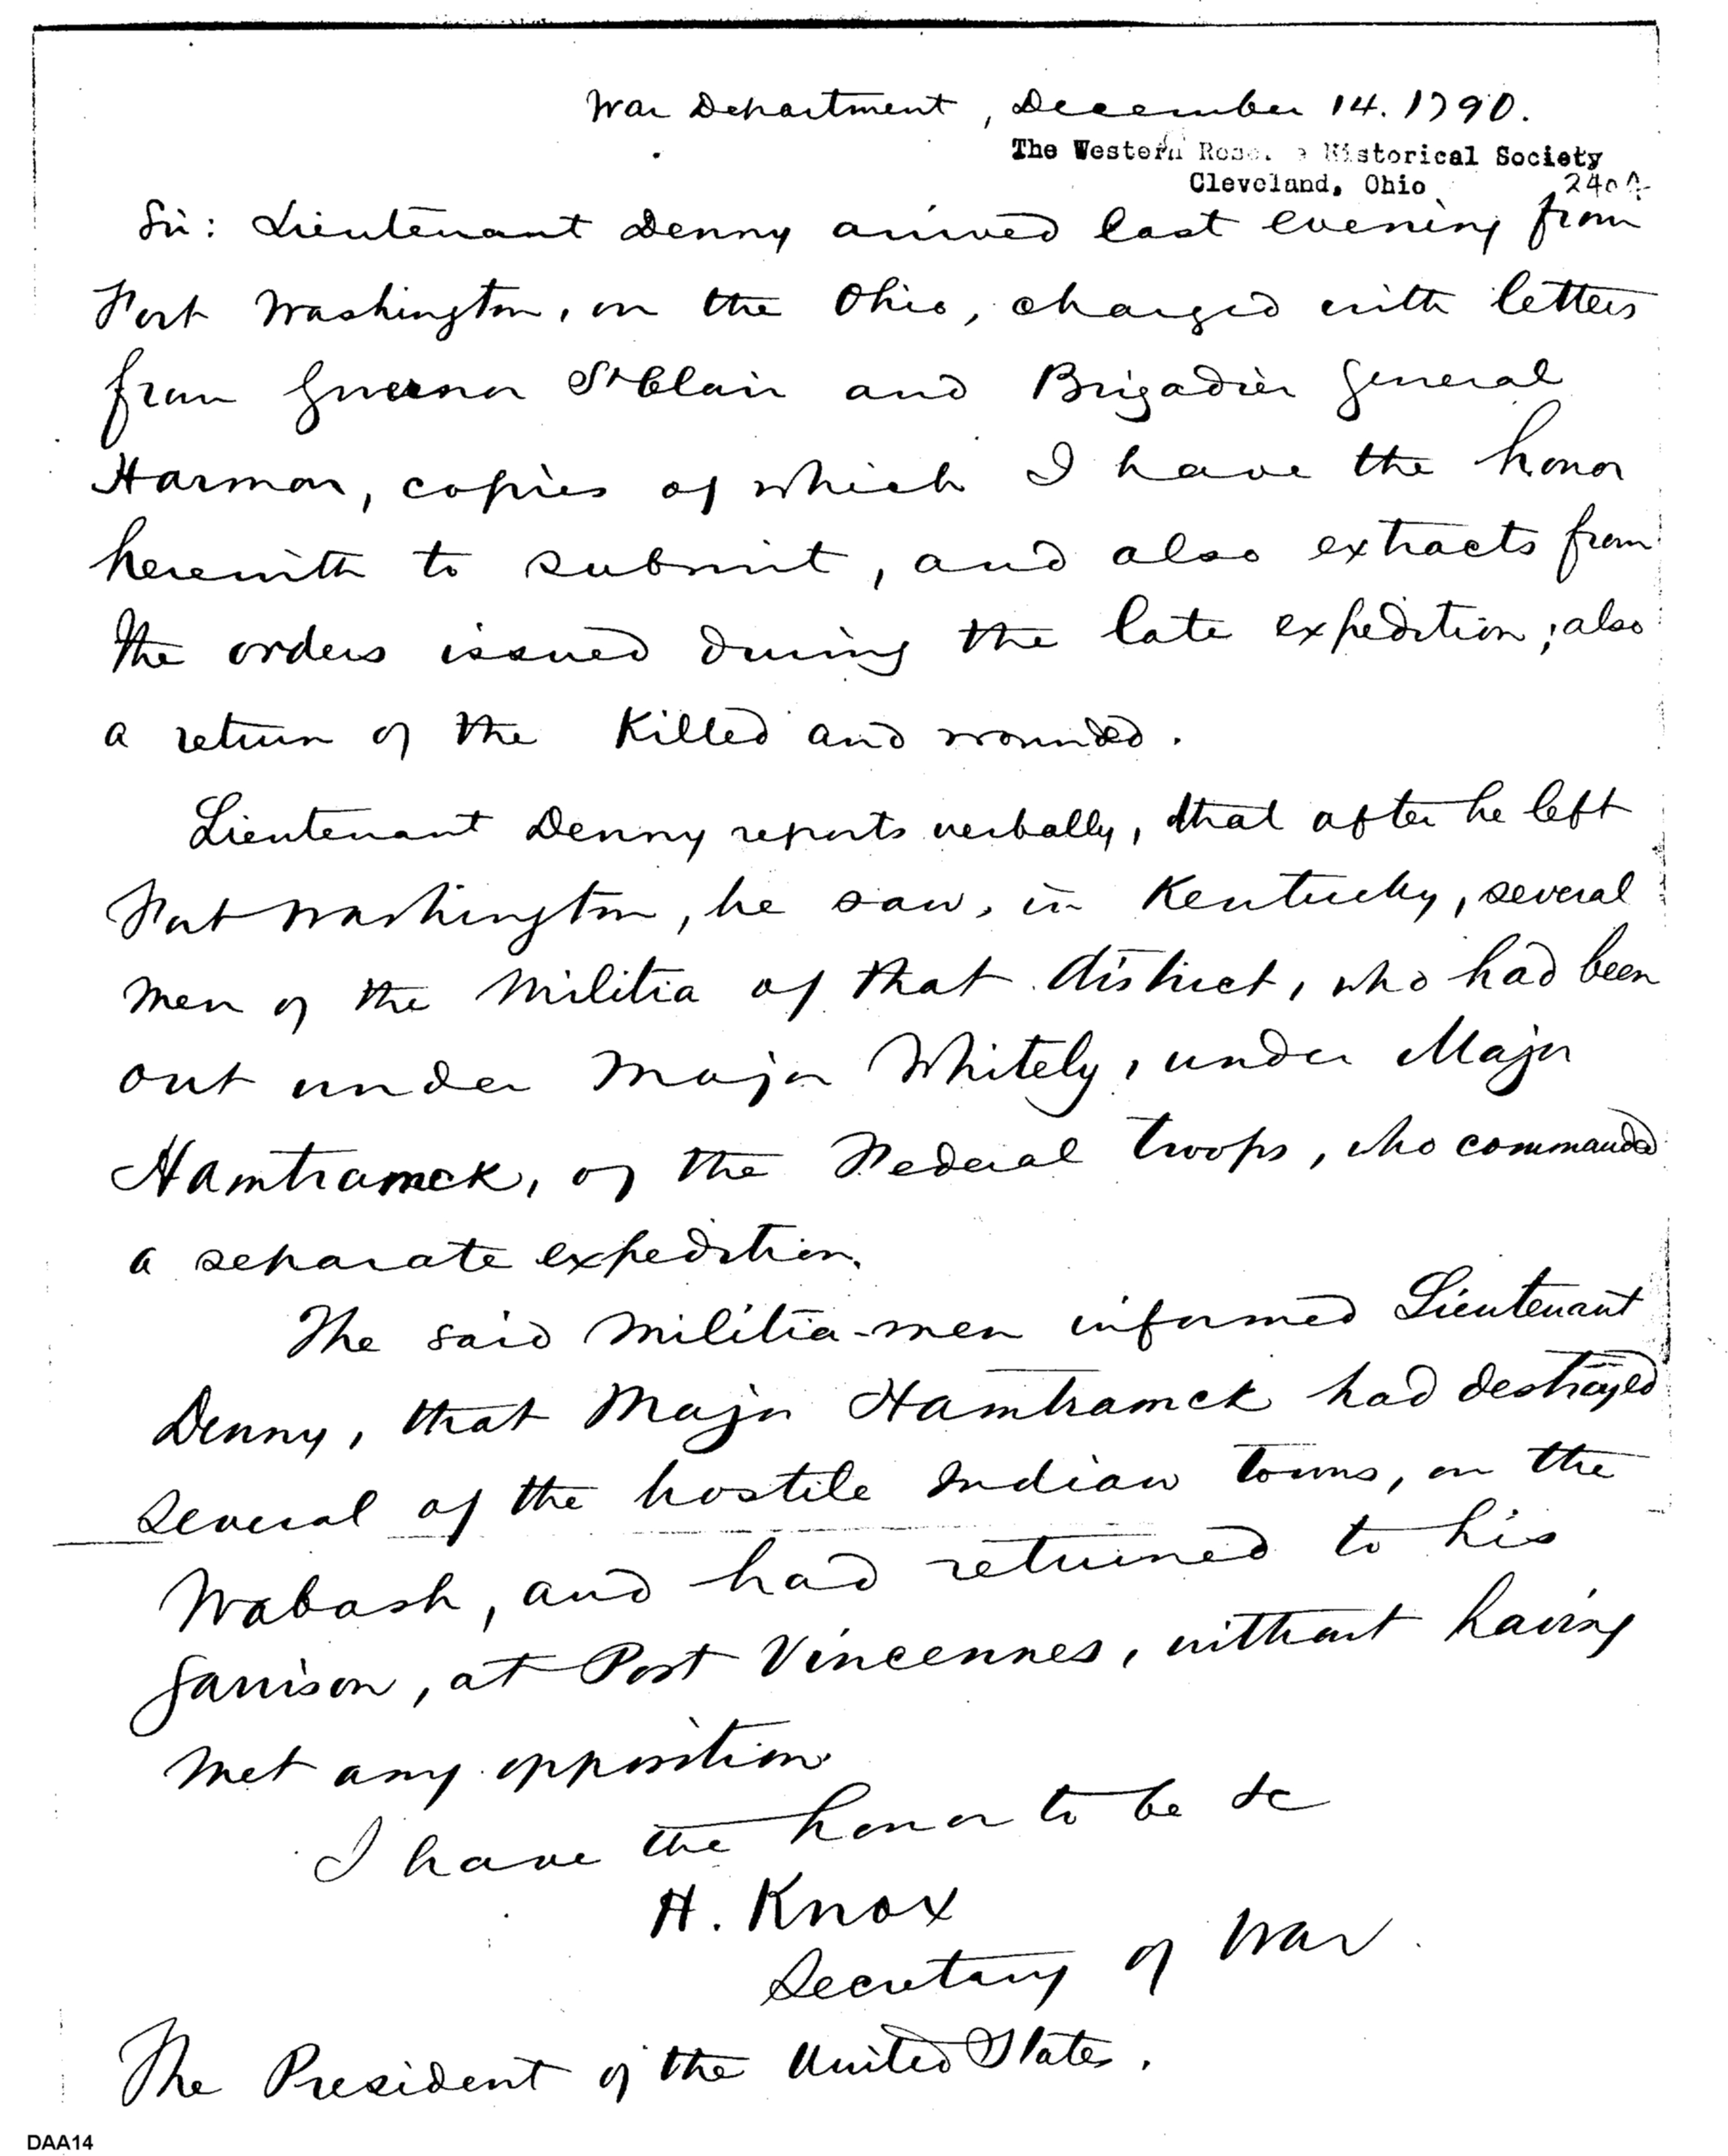 War Department, December 14. 1790.
The Western Reserve Historical Society
Cleveland, Ohio
240A
Sir: Lieutenant Denny arrived last evening from
Fort Washington, on the Ohio, charged with letters
from Governor St Clair and Brigadier General
Harmar, copies of which I have the honor
herewith to submit, and also extracts from
the orders issued during the late expedition; also
a return of the Killed and wounded.
Lieutenant Denny reports verbally, that after he left
Fort Washington, he saw, in Kentucky, several
men of the Militia of that district, who had been
out under Major Whitely, under Major
Hamtramck, of the Federal troops, who commanded
a separate expedition.
The said Militia-men informed Lieutenant
Denny, that Major Hamtramck had destroyed
several of the hostile Indian towns, on the
Wabash, and had returned to his
garrison, at Post Vincennes, without having
met any opposition
I have the honor to be &c
H. Knox
Secretary of War.
The President of the United States.
DAA14